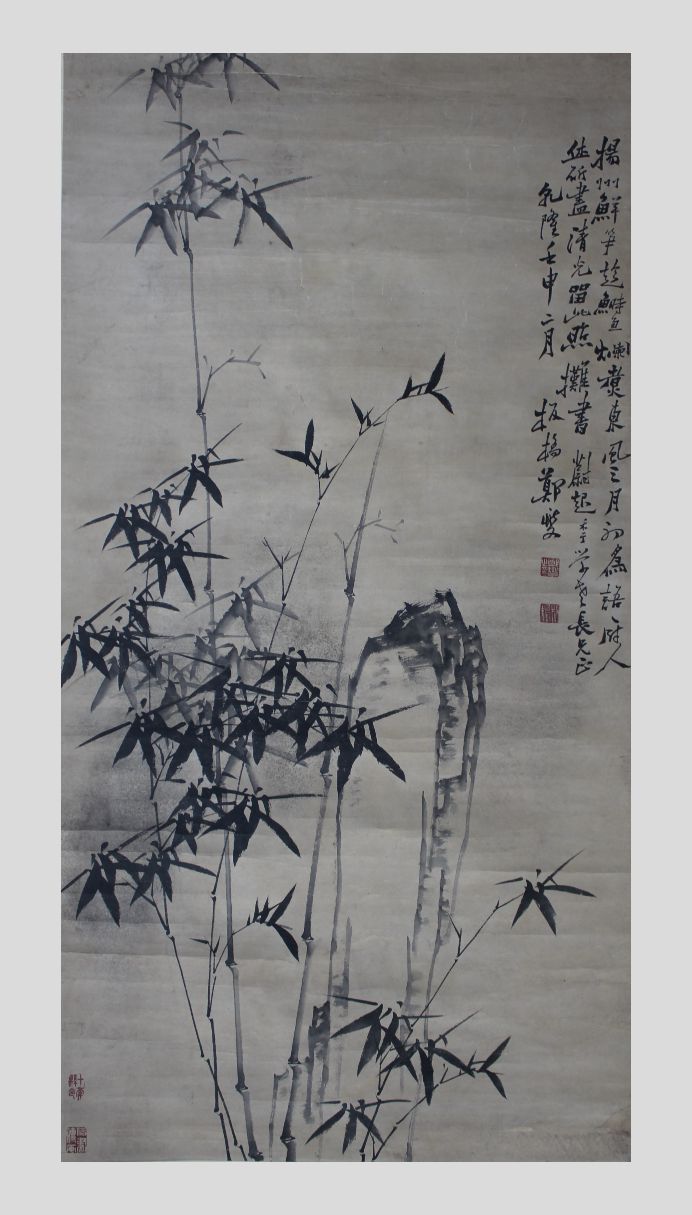 揚州鮮笋趁鰣魚爛煮東風三月初為語廚人
休斫盡清光留此照攤書 蔚起年學老長兄正
乾隆壬申二月 板橋鄭燮